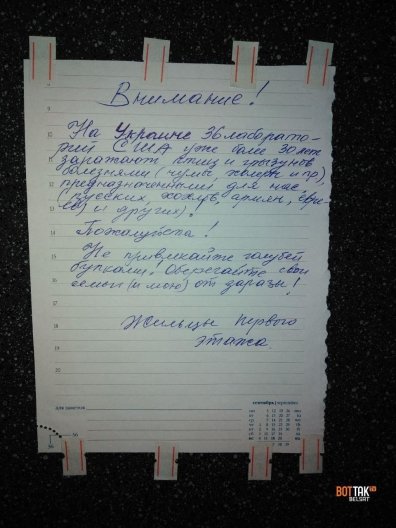 Внимание!
На Украине 36 лаборато-
рий США уже боле 30 лет
заражают птиц и грызунов
болезнями (чумы, холеры и пр),
предназначенными для нас!
(русских, хохлов, армян, евре-
ев) и других)!
Пожалуйста!
Не привлекайте голубей
булками. Оберегайте свои
семьи (и мою) от заразы!
Жильцы первого
этажа.
для заметок
сентябрь
36
36
ВОТТАК
BELSAT